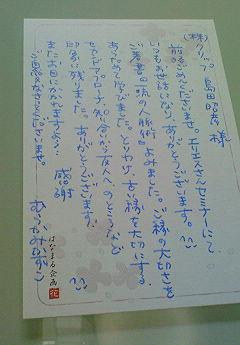 (株)クリップ 島田昭彦 様
前略ごめんくださいませ。エリエスさんセミナーにて
いつもお世話になり、ありがとうございます。
ご著書「一瞬の人脈術」よみました。ご縁の大切さを
あらためて学びました。とりわけ、古い縁を大切にする、
セカンドアプローチ、知合から友人へのところなど
印象に残りました。ありがとうございます。
またお目にかかれますよう… 感謝
ご自愛なさってくださいませ。
はなまる企画